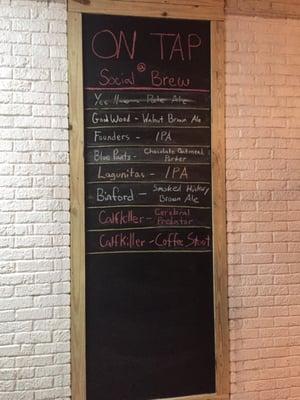 ON TAP
@
Social Brew
Pale Ale
Good Wood - Walnut Brown Ale
Founders - IPA
Blue Pants - Chocolate Oatmeal
Porter
Lagunitas - IPA
Binford - Smoked Hickory
Brown Ale
Calfkiller - Cerebral
Predator
Calfkiller - Coffee Stout